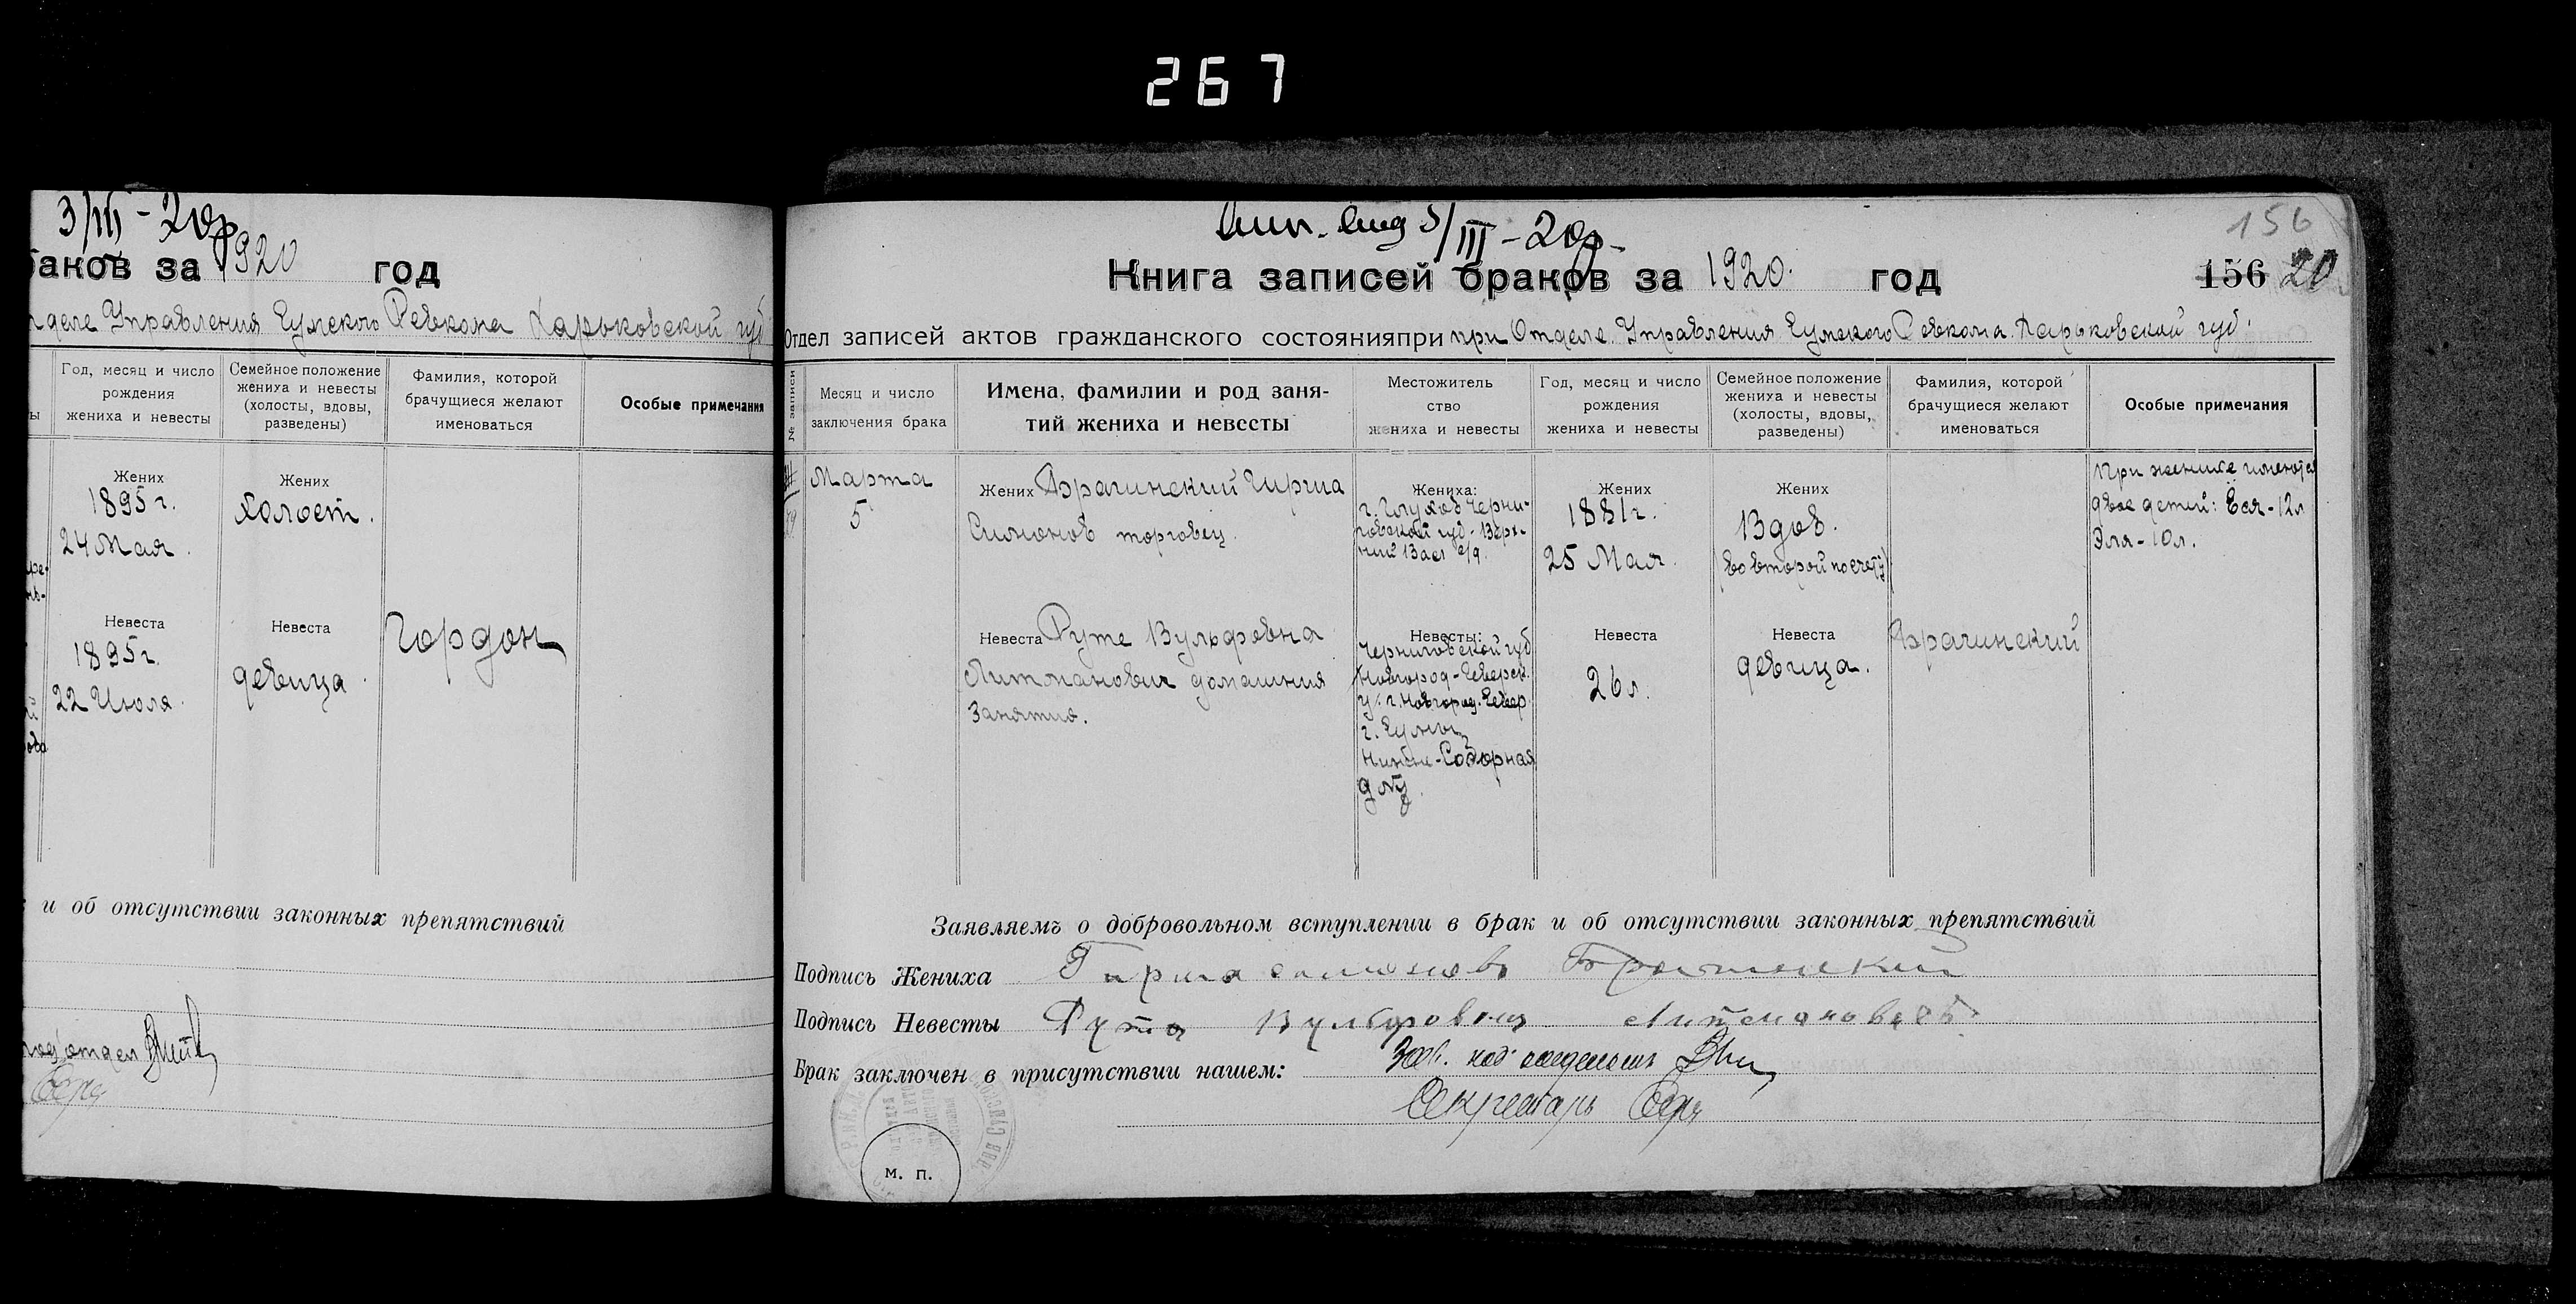 267
3/III - 20г
браков за 1920 год
Отделе Управления Сумского Ревкома Харьковской губ.
Год, месяц и число
рождения
жениха и невесты
Семейное положение
жениха и невесты
(холосты, вдовы,
разведены)
Фамилия, которой
брачущиеся желают
именоваться
Особые примечания
Жених
1895 г.
24 Мая.
Жених
холост.
Невеста
1895 г.
22 Июля.
Невеста
девица.
Гордон
и об отсутствии законных препятствий
подотдел
3/III - 20г.
156
Книга записей браков за 1920. год
156 20
Отдел записей актов гражданского состояния при при Отделе Управления Сумского Ревкома Харьковской губ.
№ записи
Месяц и число
заключения брака
Имена, фамилии и род заня-
тий жениха и невесты
Местожитель
ство
жениха и невесты
Год, месяц и число
рождения
жениха и невесты
Семейное положение
жениха и невесты
(холосты, вдовы,
разведены)
Фамилия, которой
брачущиеся желают
именоваться
Особые примечания
Марта
5
Жених Гирша
Симонов торговец.
Жениха:
г. Глухов Черни-
говской губ. Верх-
ний Вал
Жених
1881 г.
25 Мая.
Жених
Вдов.
(во второй по счету)
При женихе имеются
двое детей: Бея - 12 л
Эля - 10 л.
Невеста Руте Вульфовна
Литманович домашния
занятия.
Невесты:
Черниговской губ
Новгород-Северск.
у. г. Новгород. Север
г. Сумы
Нижне-Соборная
д №
Невеста
26 л.
Невеста
девица.
Заявляемъ о добровольном вступлении в брак и об отсутствии законных препятствий
Подпись Жениха Гирша Симоновъ
Подпись Невесты Рута Вульфовна
Брак заключен в присутствии нашем: Зав. под отделом
Секретарь
м. п.